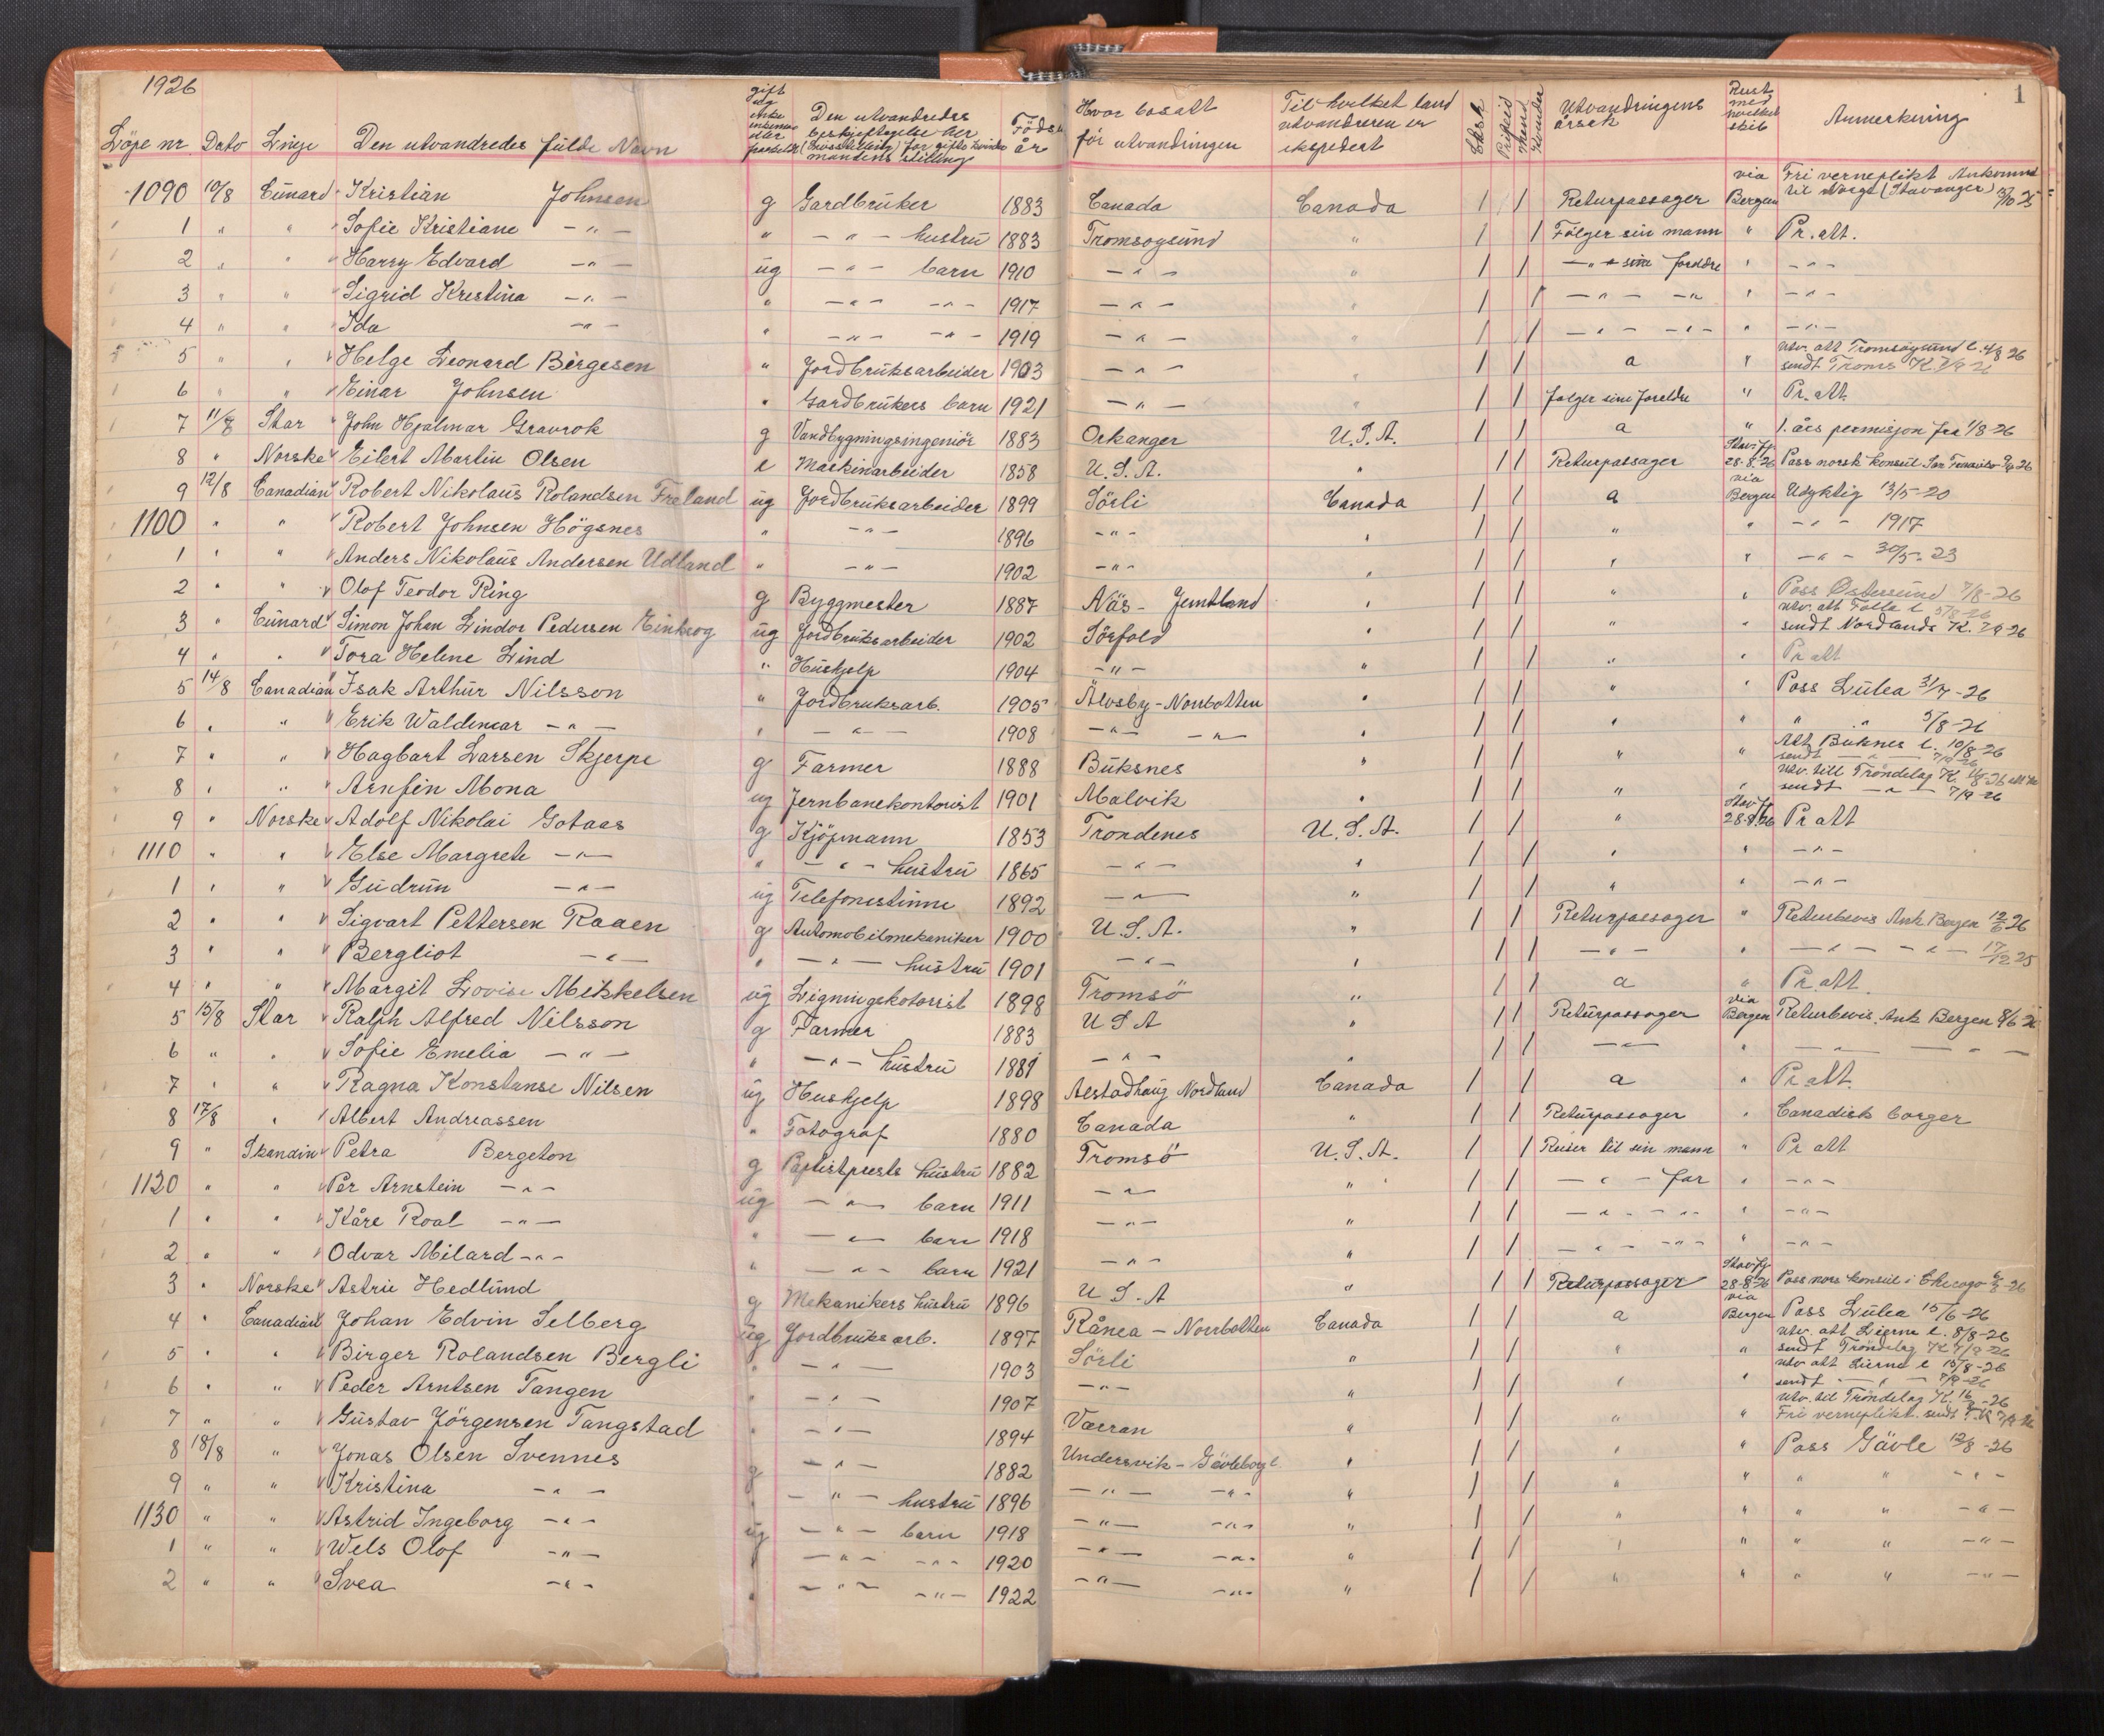 1926
1
Löpe nr Dato Linje Den utvandredes fulde Navn gift ug enke enkemann eller fraskilt Den utvandredes beskjeftigelse her (Livsstilling) for gifte kvinder mandens stilling Föds. år Hvor bosatt för utvandringen Til hvilket land utvandreren er ekspedert Utvandringens årsak Reist med hvilket skib Anmerkning
1090 10/8 Cunard Kristian Johnsen g Gardbruker 1883 Canada Canada / / Returpassager via Bergen Fri verneplikt Ankommet til Norge (Stavanger) 25
1 " " Sofie Kristiane -"- " -"- hustru 1883 Tromsoysund " / / Fölger sin mann " Pr. att.
2 " " Harry Edvard -"- ug -"- barn 1910 -"- " / / -"- sine foreldre " -"-
3 " " Sigrid Kristina -"- " -"- -"- 1917 -"- " / / -"- -"- " -"-
4 " " Ida -"- " -"- -"- 1919 -"- " / / -"- -"- " -"-
5 " " Helge Leonard Birgesen " Jordbruksarbeider 1903 -"- " / / a " utv. att Tromsöysund l. 4/8 26 sendt Troms K. 7/9 26
6 " " Einar Johnsen " Gardbrukers barn 1921 -"- " / / folger sine foreldre " Pr. att.
7 11/8 Star John Hjalmar Gravrok g Vandbygningsingeniör 1883 Orkanger U.S.A. / / a " 1. års permisjon fra 1/8-26
8 " Norske Eilert Martin Olsen e Maskinarbeider 1858 U.S.A. " / / Returpassager Stav.fj. 28-8-26 Pass norsk konsul San 26
9 12/8 Canadian Robert Nikolaus Rolandsen Freland ug Jordbruksarbeider 1899 Sörli Canada / / a via Bergen Udyktig 13/5-20
1100 " " Robert Johnsen Högsnes " -"- 1896 -"- " / / " " -"- 1917
1 " " Anders Nikolaus Andersen Udland " -"- 1902 -"- " / / " " -"- 30/5-23
2 " " Olof Teodor Ring g Byggmester 1887 Näs - Jemtland " / / " " Pass Østersund 7/8-26
3 " Cunard Simon Johan Lindor Pedersen ug Jordbruksarbeider 1902 Sörfold " / / " " utv. att Folla l 5/8-26 sendt Nordlands K. 7/9 26
4 " " Tora Helene Lind " Hushjelp 1904 -"- " / / " " Pr att
5 14/8 Canadian Isak Arthur Nilsson " Jordbruksarb. 1905 Älvsby - Norrbotten " / / " " Pass Lulea 31/7-26
6 " " Erik Waldemar -"- " -"- 1908 -"- -"- " / / " " " " 5/8-26
7 " " Hagbart Larsen Skjerpe g Farmer 1888 Buksnes " / / " " Att Buknes l. 10/8-26 sendt -"- 7/9 26
8 " " Arnfin Mona ug Jernbanekontorist 1901 Malvik " / / " " utv. till Tröndelag K. 26 sendt -"- 7/9 26
9 " Norske Adolf Nikolai Gotaas g Kjöpmann 1853 Trondenes U.S.A. / / " Stav.fj. 28-8-26 Pr att
1110 " " Else Margrete -"- " -"- hustru 1865 -"- " / / " " -"-
1 " " Gudrun -"- ug Telefonistinne 1892 -"- " / / " " -"-
2 " " Sigvart Pettersen Raaen g Automobilmekaniker 1900 U.S.A. " / / Returpassager " Returbevis Ank Bergen 12/6 26
3 " " Bergliot -"- " -"- hustru 1901 -"- " / / -"- " -"- -"- 17/12 25
4 " " Margit Lovise Mikkelsen ug Ligningskotorist 1898 Tromsö " / / a " Pr. att.
5 15/8 Star Ralph Alfred Nilsson g Farmer 1883 U S A " / / Returpassager via Bergen Returbevis. Ank Bergen 8/6 26
6 " " Sofie Emelia -"- " -"- hustru 1881 -"- " / / -"- " -"- -"-
7 " " Ragna Konstanse Nilsen ug Hushjelp 1898 Alstadhaug Nordland Canada / / a " Pr att.
8 17/8 " Albert Andreassen " Fotograf 1880 Canada " / / Returpassager " Canadisk borger
9 " Skandin Petra Bergeton g Baptistprests hustru 1882 Tromsö U.S.A. / / Reiser til sin mann " Pr att
1120 " " Per Arnstein -"- ug -"- barn 1911 -"- " / / -"- far " -"-
1 " " Kåre Roal -"- " -"- barn 1918 -"- " / / -"- -"- " -"-
2 " " Odvar Milard -"- " -"- barn 1921 -"- " / / -"- -"- " -"-
3 " Norske Astrid Hedlund g Mekanikers hustru 1896 U S. A " / / Returpassager Stav.fj. 28-8-26 Pass nors konsul i Chicago 26
4 " Canadian Johan Edvin Selberg ug Jordbruksarb. 1897 Rånea - Norrbotten Canada / / a via Bergen Pass Lulea 15/6-26
5 " " Birger Rolandsen Bergli " -"- 1903 Sörli " / / " " utv. att Lierne l. 8/8-26 sendt Tröndelag K 7/9-26
6 " " Peder Arntsen Tangen " -"- 1907 -"- " / / " " utv att Lierne l 15/8-26 sendt -"- 7/9-26
7 " " Gustav Jörgensen Tangstad " -"- 1894 Værran " / / " " utv. til Tröndelag K. 26 Fri verneplikt. sendt T.K 7/9 26
8 18/8 " Jonas Olsen Svennes g -"- 1882 Undersvik - Gävleborg l. " / / " " Pass Gävle 12/8-26
9 " " Kristina -"- " -"- hustru 1896 -"- -"- " / / " " " " -"-
1130 " " Astrid Ingeborg -"- ug -"- barn 1918 -"- -"- " / / " " " " -"-
1 " " Wels Olof -"- " -"- -"- 1920 -"- -"- " / / " " " " -"-
2 " " Svea -"- " -"- -"- 1922 -"- -"- " / / " " " " -"-